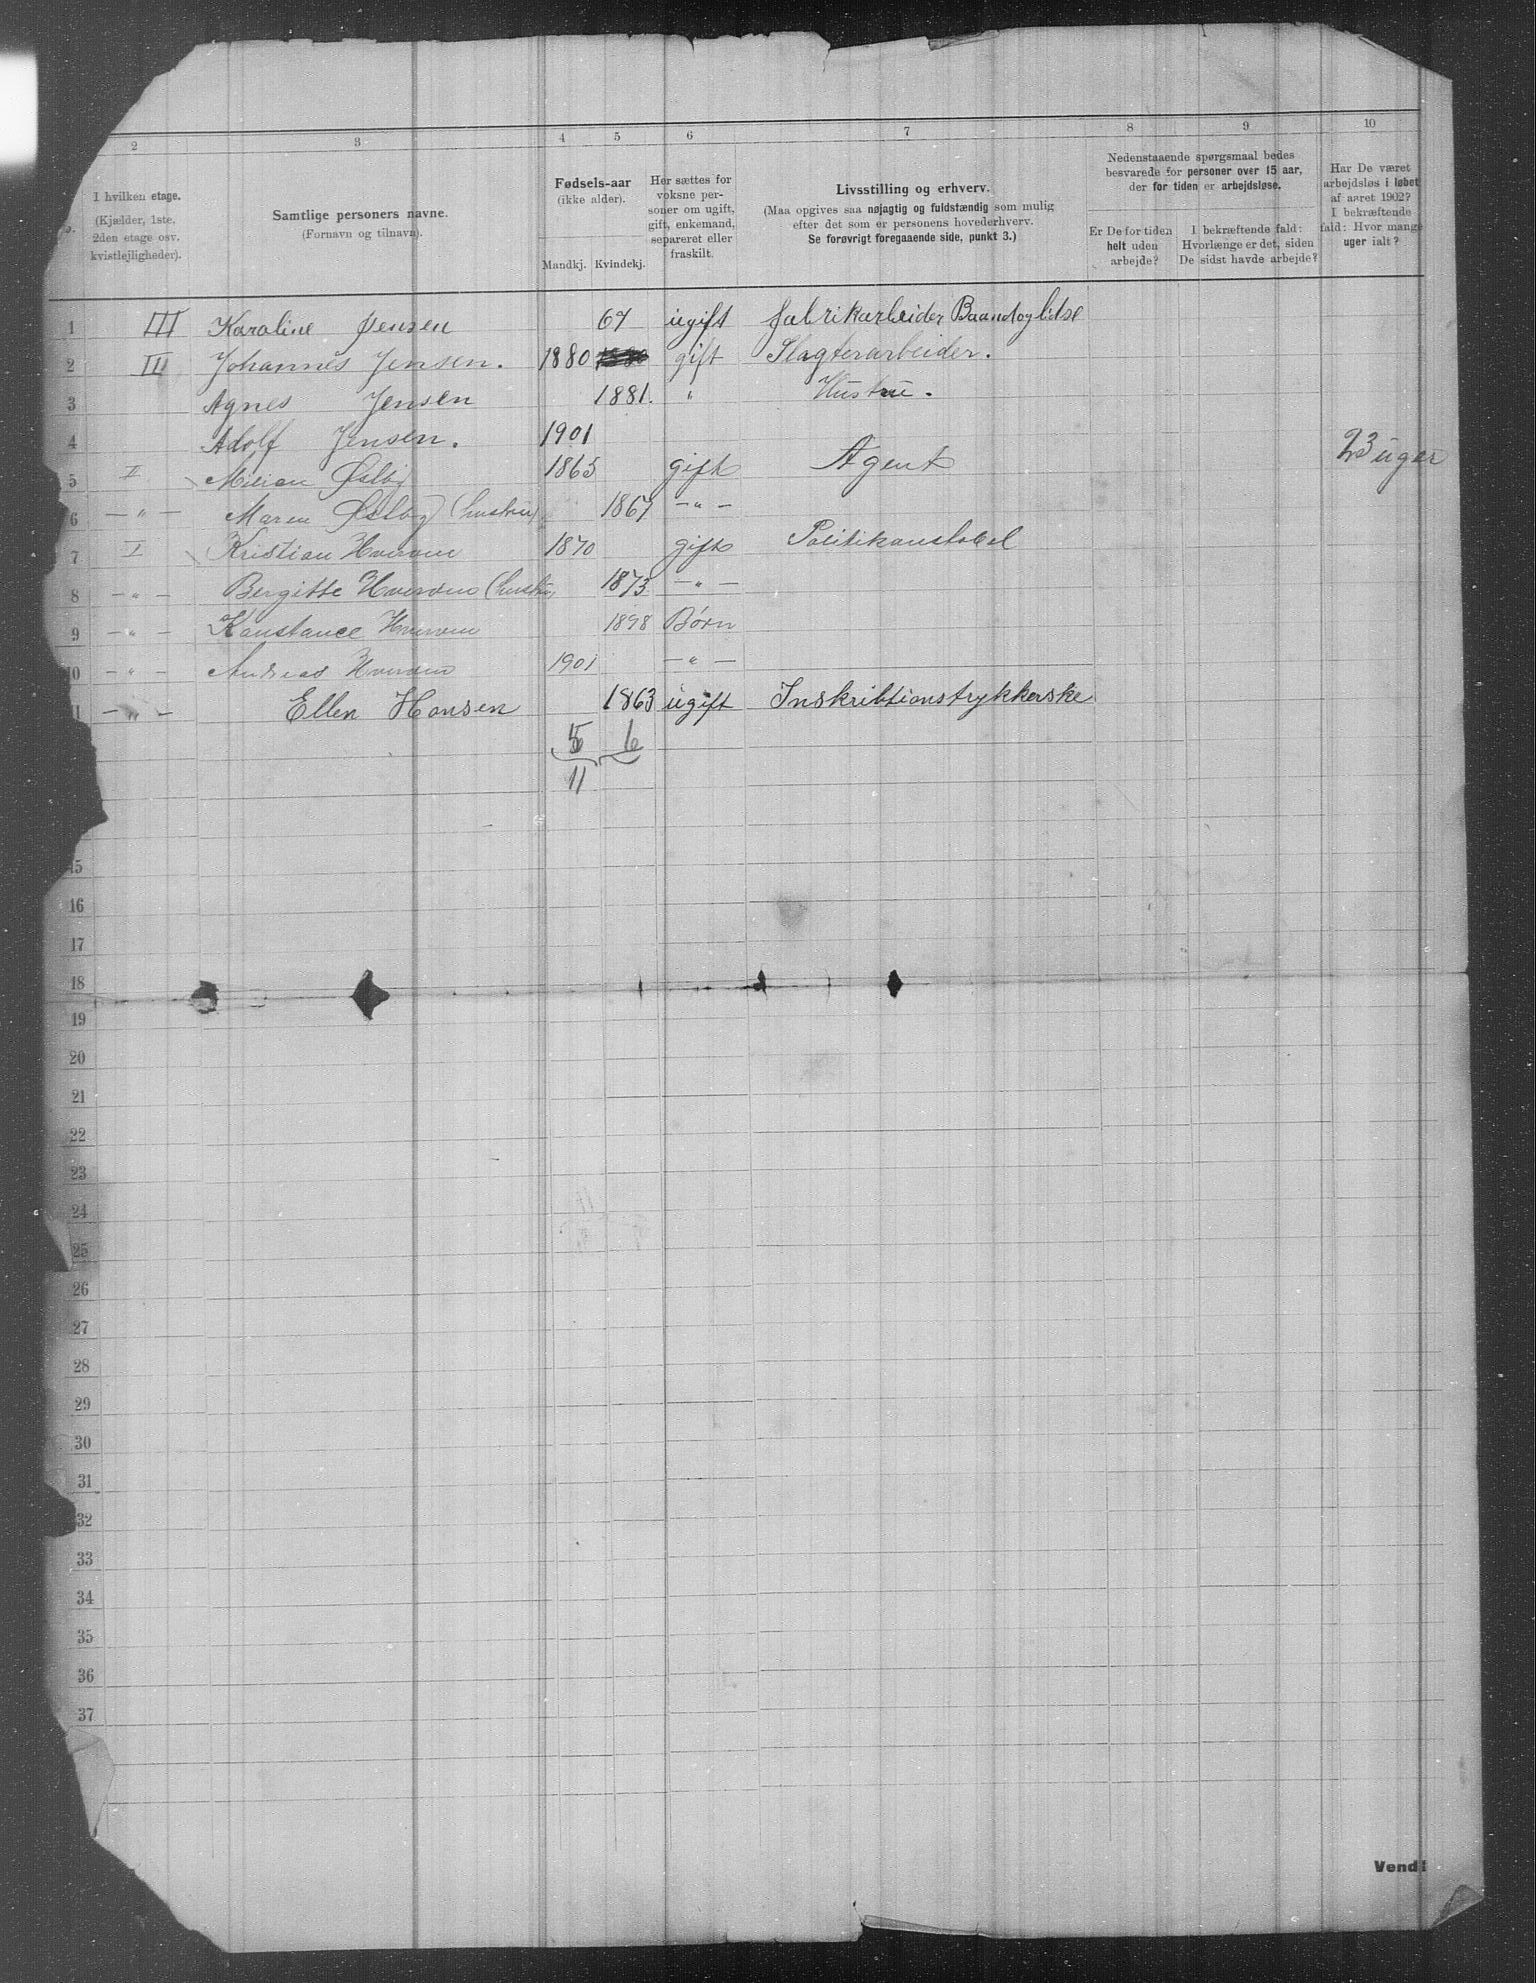 2 3 4 5 6 7 8 9 10
I hvilken etage.
(Kjælder, 1ste,
2den etage osv.
kvistlejligheder).
Samtlige personers navne.
(Fornavn og tilnavn).
Fødsels-aar
(ikke alder).
Mandkj. Kvindekj.
Her sættes for
voksne per-
soner om ugift,
gift, enkemand,
separeret eller
fraskilt.
Livsstilling og erhverv.
(Maa opgives saa nøjagtig og fuldstændig som mulig
efter det som er personens hovederhverv.
Se forøvrigt foregaaende side, punkt 3.)
Nedenstaaende spørgsmaal bedes
besvarede for personer over 15 aar,
der for tiden er arbejdsløse.
Er De for tiden
helt uden
arbejde?
I bekræftende fald:
Hvorlænge er det, siden
De sidst havde arbejde?
Har De været
arbejdsløs i løbet
af aaret 1902?
I bekræftende
fald: Hvor mange
uger ialt?
1 III Karoline Jensen 67 ugift fabrikarbeider
2 III Johannes Jensen. 1880 gift Slagterarbeider.
3 Agnes Jensen 1881. " Hustru.
4 Adolf Jensen. 1901
5 II Østby 1865 gift Agent 23 uger
6 — " — Maren Østby (hustru) 1867 — " —
7 I Kristian Hverven 1870 gift Politikonstabel
8 — " — Bergitte Hverven (hustru) 1873 — " —
9 — " — Konstance Hverven 1898 Børn
10 — " — Andreas Hverven 1901 — " —
11 — " — Ellen Hansen 1863 ugift Inskribtionstrykkerske
5 6
11
15
16
17
18
19
20
21
22
23
24
25
26
27
28
29
30
31
32
33
34
35
36
37
Vend!